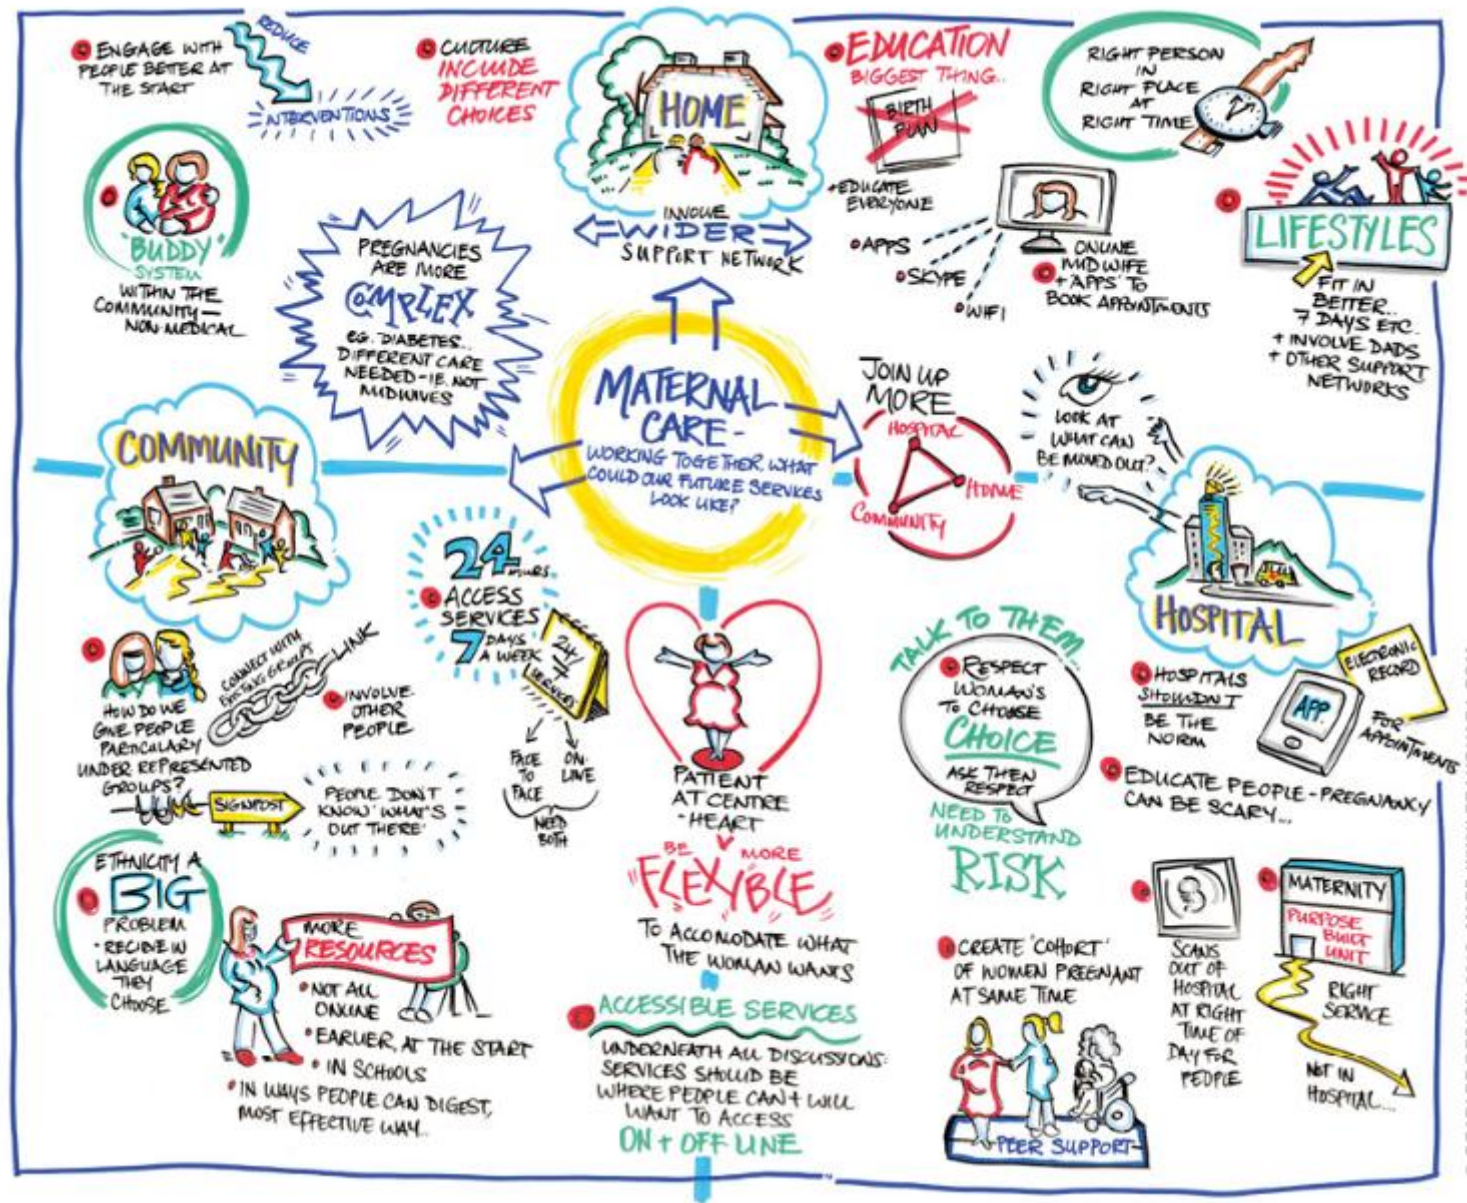 ENGAGE WITH
PEOPLE BETTER AT
THE START
REDUCE
INTERVENTIONS
CULTURE
INCLUDE
DIFFERENT
CHOICES
HOME
INVOLVE
WIDER
SUPPORT NETWORK
EDUCATION
BIGGEST THING..
BIRTH
PLAN
+EDUCATE
EVERYONE
APPS
SKYPE
WIFI
ONLINE
MIDWIFE
+ 'APPS' TO
BOOK APPOINTMENTS
RIGHT PERSON
IN
RIGHT PLACE
AT
RIGHT TIME
LIFESTYLES
FIT IN
BETTER..
7 DAYS ETC.
+ INVOLVE DADS
+ OTHER SUPPORT
NETWORKS
"BUDDY"
SYSTEM
WITHIN THE
COMMUNITY—
NON MEDICAL
PREGNANCIES
ARE MORE
COMPLEX
EG. DIABETES..
DIFFERENT CARE
NEEDED-IE. NOT
MIDWIVES
MATERNAL
CARE-
WORKING TOGETHER. WHAT
COULD OUR FUTURE SERVICES
LOOK LIKE?
JOIN UP
MORE
HOSPITAL
HOME
COMMUNITY
LOOK AT
WHAT CAN
BE MOVED OUT?
COMMUNITY
HOSPITAL
24
HOURS
ACCESS
SERVICES
7 DAYS
A WEEK
24/
7
SERVICES
FACE
TO
FACE
ON-
LINE
NEED
BOTH
HOW DO WE
GIVE PEOPLE
PARTICULARY
UNDER REPRESENTED
GROUPS?
CONNECT WITH
EXISTING GROUPS
LINK
INVOLVE
OTHER
PEOPLE
SIGNPOST
PEOPLE DON'T
KNOW 'WHAT'S
OUT THERE'
PATIENT
AT CENTRE
-HEART
BE MORE
FLEXIBLE
TO ACCOMODATE WHAT
THE WOMAN WANTS
TALK TO THEM...
RESPECT
WOMAN'S
TO CHOOSE
CHOICE
ASK THEN
RESPECT
NEED TO
UNDERSTAND
RISK
HOSPITALS
SHOULDN'T
BE THE
NORM
APP.
ELECTRONIC
RECORD
FOR
APPOINTMENTS
EDUCATE PEOPLE-PREGNANCY
CAN BE SCARY...
ETHNICITY A
BIG
PROBLEM
- RECEIVE IN
LANGUAGE
THEY
CHOOSE
MORE
RESOURCES
NOT ALL
ONLINE
EARLIER, AT THE START
IN SCHOOLS
IN WAYS PEOPLE CAN DIGEST,
MOST EFFECTIVE WAY..
ACCESSIBLE SERVICES
UNDERNEATH ALL DISCUSSIONS:
SERVICES SHOULD BE
WHERE PEOPLE CAN + WILL
WANT TO ACCESS
ON + OFF LINE
CREATE 'COHORT'
OF WOMEN PREGNANT
AT SAME TIME
PEER SUPPORT
SCANS
OUT OF
HOSPITAL
AT RIGHT
TIME OF
DAY FOR
PEOPLE
MATERNITY
PURPOSE
BUILT
UNIT
RIGHT
SERVICE
NOT IN
HOSPITAL...